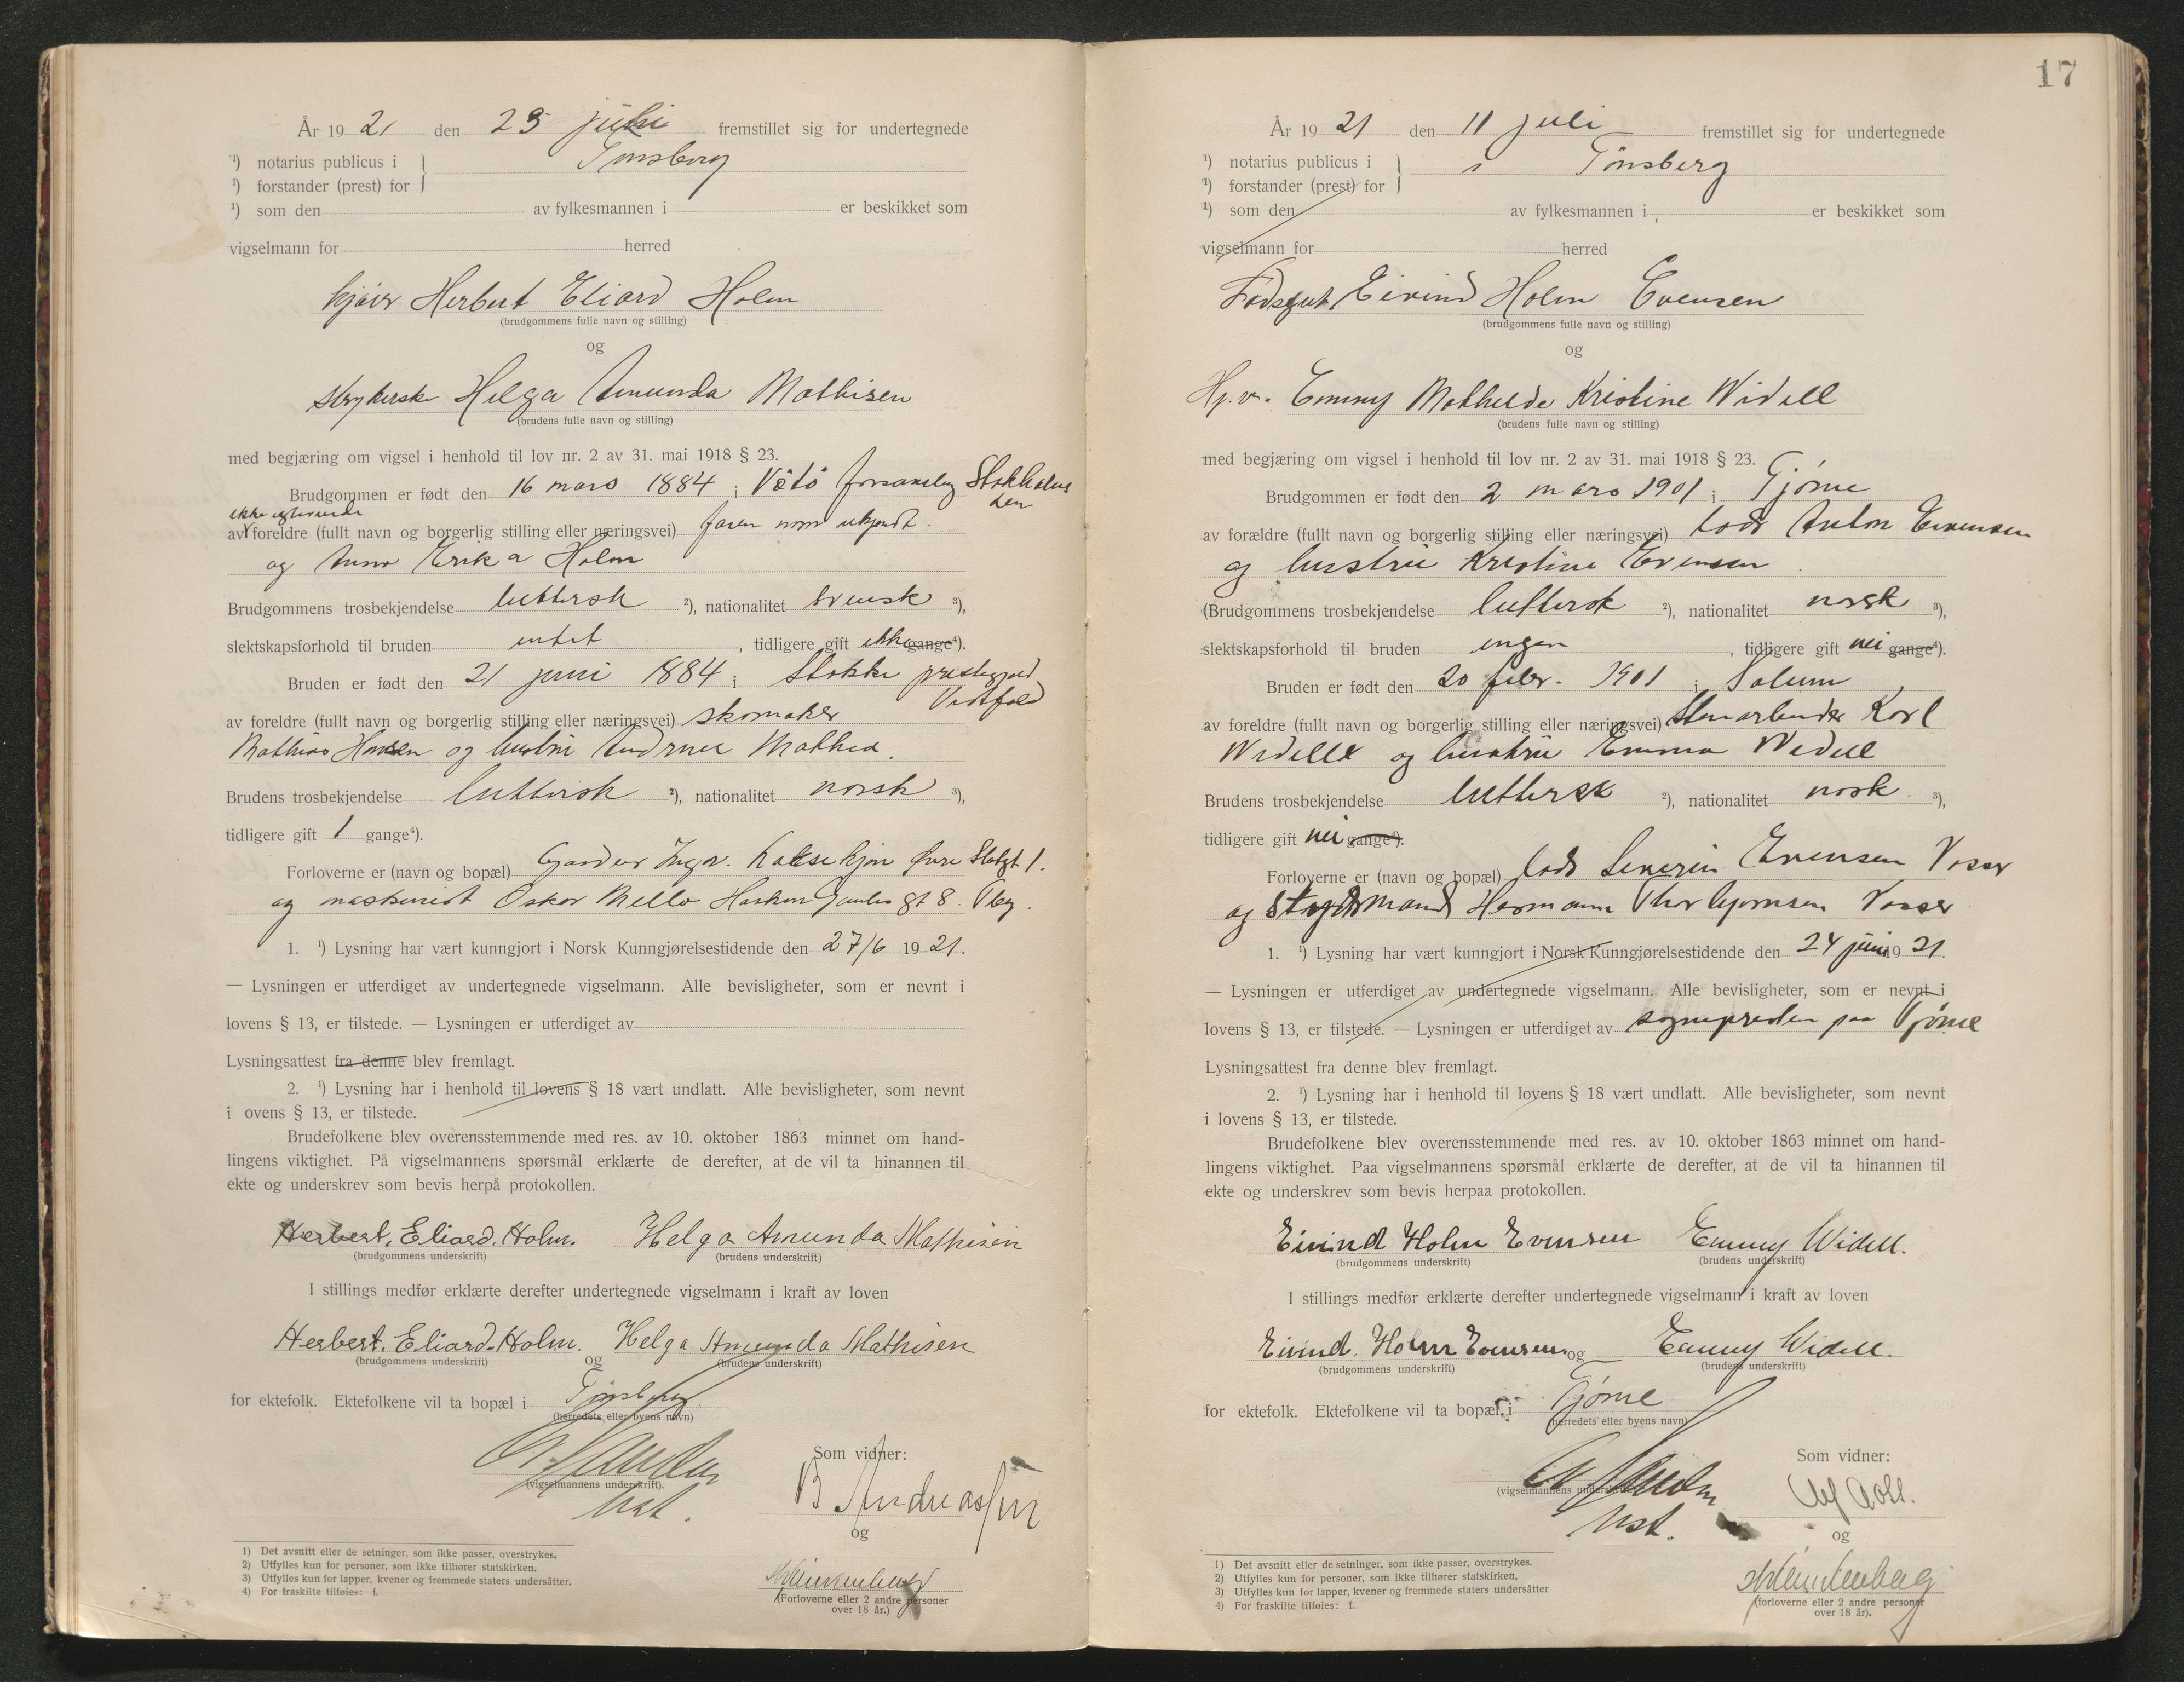 År 19 21 den 25 juli fremstillet sig for undertegnede
¹) notarius publicus i } Tønsberg
¹) forstander (prest) for
¹) som den av fylkesmannen i er beskikket som
vigselmann for herred
Herbert Eliard Holm
(brudgommens fulle navn og stilling)
og
strykerske Helga Amunda Mathisen
(brudens fulle navn og stilling)
med begjæring om vigsel i henhold til lov nr. 2 av 31. mai 1918 § 23.
Brudgommen er født den 16 mars 1884 i Vätö Stokholms
len
ikke egteviede
av foreldre (fullt navn og borgerlig stilling eller næringsvei) faren navn ukjendt.
og Anna Erika Holm
Brudgommens trosbekjendelse luthersk ²), nationalitet svensk ³),
slektskapsforhold til bruden intet , tidligere gift ikke gange⁴).
Bruden er født den 21 juni 1884 i Stokke prestegjeld
Vestfold
av foreldre (fullt navn og borgerlig stilling eller næringsvei) skomaker
Mathias Hansen og hustru Andrine Mathea.
Brudens trosbekjendelse luthersk ²), nationalitet norsk ³),
tidligere gift 1 gange⁴).
Forloverne er (navn og bopæl) Øvre 1.
og maskinist Oskar Mello Haakon Gamles gt 8. Tbg.
1. ¹) Lysning har vært kunngjort i Norsk Kunngjørelsestidende den 27/6 19 21.
— Lysningen er utferdiget av undertegnede vigselmann. Alle bevisligheter, som er nevnt i
lovens § 13, er tilstede. — Lysningen er utferdiget av
Lysningsattest fra denne blev fremlagt.
2. ¹) Lysning har i henhold til lovens § 18 vært undlatt. Alle bevisligheter, som nevnt
i ovens § 13, er tilstede.
Brudefolkene blev overensstemmende med res. av 10. oktober 1863 minnet om hand-
lingens viktighet. På vigselmannens spørsmål erklærte de derefter, at de vil ta hinannen til
ekte og underskrev som bevis herpå protokollen.
Herbert. Eliard. Holm. Helga Amunda Mathisen
(brudgommens underskrift) (brudens underskrift)
I stillings medfør erklærte derefter undertegnede vigselmann i kraft av loven
Herbert. Eliard. Holm. og Helga Amunda Mathisen
(brudgommens underskrift) (brudens underskrift)
for ektefolk. Ektefolkene vil ta bopæl i Tønsberg.
(herredets eller byens navn)
Som vidner:
(vigselmannens underskrift).
B Andreassen
og
(Forloverne eller 2 andre personer
over 18 år.)
1) Det avsnitt eller de setninger, som ikke passer, overstrykes.
2) Utfylles kun for personer, som ikke tilhører statskirken.
3) Utfylles kun for lapper, kvener og fremmede staters undersåtter.
4) For fraskilte tilføies: f.
17
År 19 21 den 11 juli fremstillet sig for undertegnede
¹) notarius publicus i } i Tønsberg
¹) forstander (prest) for
¹) som den av fylkesmannen i er beskikket som
vigselmann for herred
Lodsgut Eivind Holm Evensen
(brudgommens fulle navn og stilling)
og
Hj.v. Emmy Mathilde Kristine Widell
(brudens fulle navn og stilling)
med begjæring om vigsel i henhold til lov nr. 2 av 31. mai 1918 § 23.
Brudgommen er født den 2 mars 1901 i Tjøme
av forældre (fullt navn og borgerlig stilling eller næringsvei) lods Anton Evensen
og hustru Kristine Evensen
(Brudgommens trosbekjendelse luthersk ²), nationalitet norsk ³),
slektskapsforhold til bruden ingen , tidligere gift nei gange⁴).
Bruden er født den 20 febr. 1901 i Solum
av foreldre (fullt navn og borgerlig stilling eller næringsvei) Stenarbeider Karl
Widell og hustru Emma Widell
Brudens trosbekjendelse luthersk ²), nationalitet norsk ³),
tidligere gift nei gange⁴).
Forloverne er (navn og bopæl) lods Severin Evensen Vasser
og Styrmand Hermann Thorbjørnsen Vasser
1. ¹) Lysning har vært kunngjort i Norsk Kunngjørelsestidende den 24 juni 19 21.
— Lysningen er utferdiget av undertegnede vigselmann. Alle bevisligheter, som er nevnt i
lovens § 13, er tilstede. — Lysningen er utferdiget av sognepresten paa Tjøme
Lysningsattest fra denne blev fremlagt.
2. ¹) Lysning har i henhold til lovens § 18 vært undlatt. Alle bevisligheter, som nevnt
i lovens § 13, er tilstede.
Brudefolkene blev overensstemmende med res. av 10. oktober 1863 minnet om hand-
lingens viktighet. Paa vigselmannens spørsmål erklærte de derefter, at de vil ta hinannen til
ekte og underskrev som bevis herpaa protokollen.
Eivind Holm Evensen Emmy Widell.
(brudgommens underskrift) (brudens underskrift)
I stillings medfør erklærte derefter undertegnede vigselmann i kraft av loven
Eivind. Holm Evensen og Emmy Widell.
(brudgommens underskrift) (brudens underskrift)
for ektefolk. Ektefolkene vil ta bopæl i Tjøme
(herredets eller byens navn)
Som vidner:
(vigselmannens underskrift)
og
(forloverne eller 2 andre personer
over 18 år).
1) Det avsnitt eller de setninger, som ikke passer, overstrykes.
2) Utfylles kun for personer, som ikke tilhører statskirken.
3) Utfylles kun for lapper, kvener og fremmede staters undersåtter
4) For fraskilte tilføies: f.